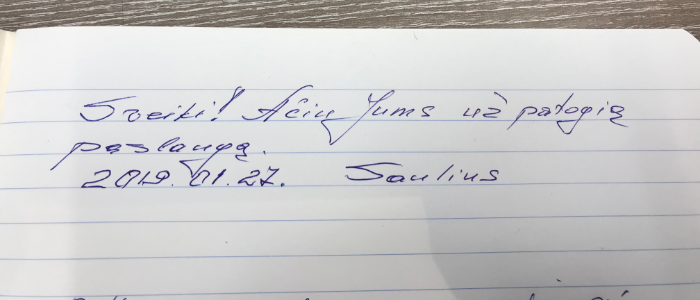 Sveiki! Ačiū Jums už patogią
paslaugą.
2019.01.27. Saulius